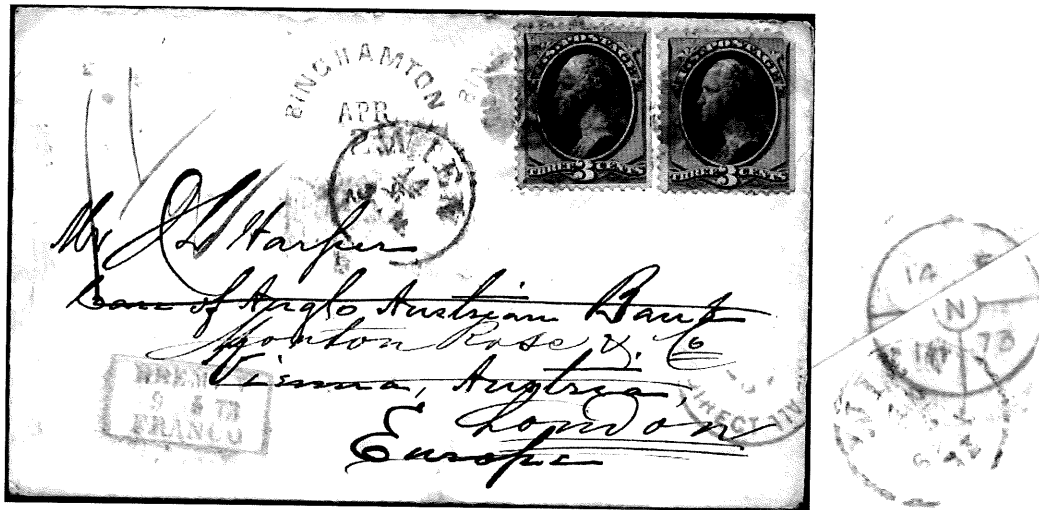 BINGHAMTON
APR
WIEN
U.S. POSTAGE
THREE 3 CENTS
U.S. POSTAGE
THREE 3 CENTS
Mr J L Harper
Care of Anglo Austrian Bank
Morton Rose & Co
Vienna, Austria,
London
Europe
BREM
9 5 73
FRANCO
DIRECT
14 5
N
73